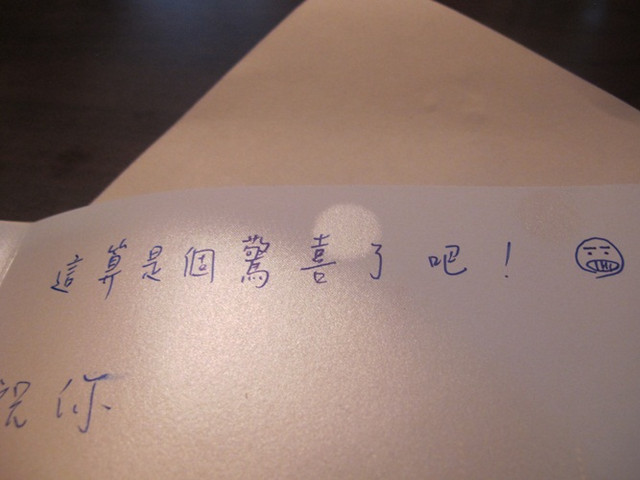 這算是個驚喜了吧！
祝你